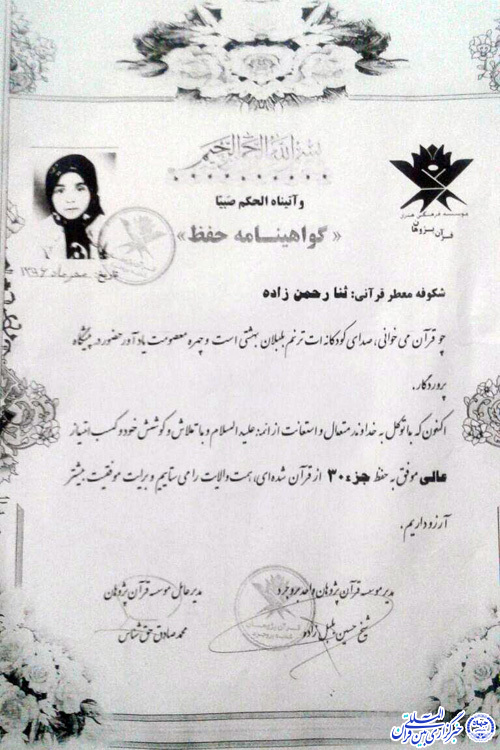 بسم الله الرحمن الرحیم
وآتیناه الحکم صبیّا
« گواهینامه حفظ »
موسسه فرهنگی هنری
قرآن پژوهان
تاریخ: مهرماه ۱۳۹۶
شکوفه معطر قرآنی: ثنا رحمن زاده
چو قرآن می خوانی، صدای کودکانه ات ترنم بلبلان بهشتی است و چهره معصومت یادآور حضور در پیشگاه
پروردگار.
اکنون که با توکل به خداوند متعال و استعانت از ائمه علیه السلام و با تلاش و کوشش خود و کسب امتیاز
عالی موفق به حفظ جزء ۳۰ از قرآن شده ای، همت والایت را می ستاییم و برایت موفقیت بیشتر
آرزو داریم.
مدیر موسسه قرآن پژوهان واحد بروجرد
شیخ حسین بلبل زاده
مدیر عامل موسسه قرآن پژوهان
محمد صادق حق شناس
خبرگزاری بین المللی قرآن